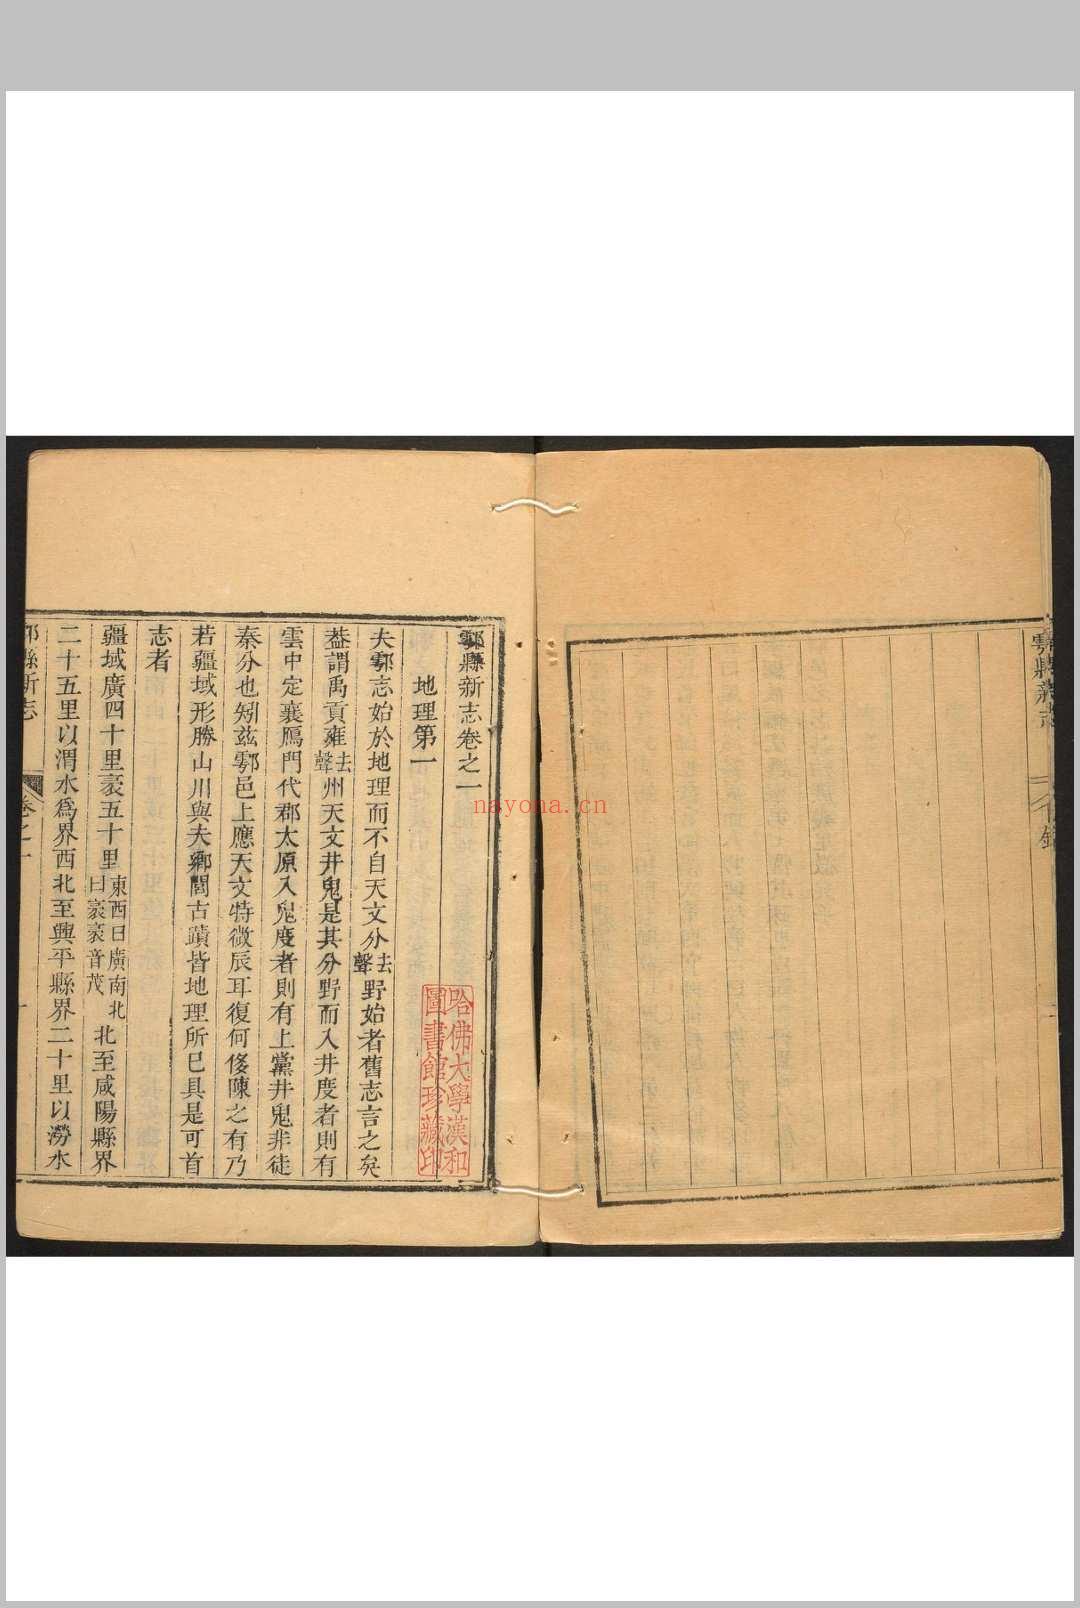 鄠縣新志
鄠縣新志卷之一
地理第一
夫鄠志始於地理而不自天文分去聲野始者舊志言之矣
葢謂禹貢雍去聲州天文井鬼是其分野而入井度者則有
雲中定襄鴈門代郡太原入鬼度者則有上黨井鬼非徒
秦分也矧兹鄠邑上應天文特微辰耳復何侈陳之有乃
若疆域形勝山川與夫鄉閭古蹟皆地理所已具是可首
志者
疆域廣四十里袤五十里東西曰廣南北曰袤袤音茂北至咸陽縣界
二十五里以渭水爲界西北至興平縣界二十里以澇水
縣新志
卷之一
哈佛大學漢和
圖書館珍藏印
nayona.cn